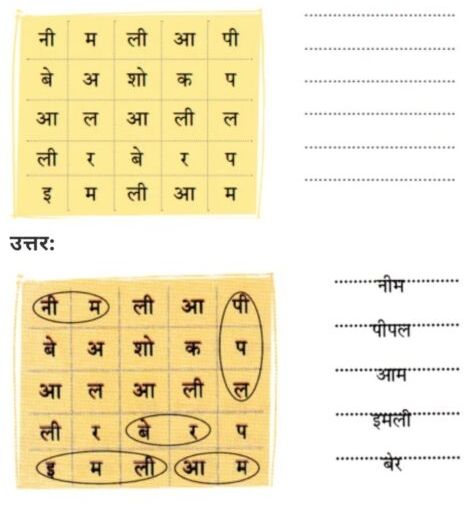 नी म ली आ पी
बे अ शो क प
आ ल आ ली ल
ली र बे र प
इ म ली आ म
उत्तर:
नी म ली आ पी
बे अ शो क प
आ ल आ ली ल
ली र बे र प
इ म ली आ म
नीम
पीपल
आम
इमली
बेर